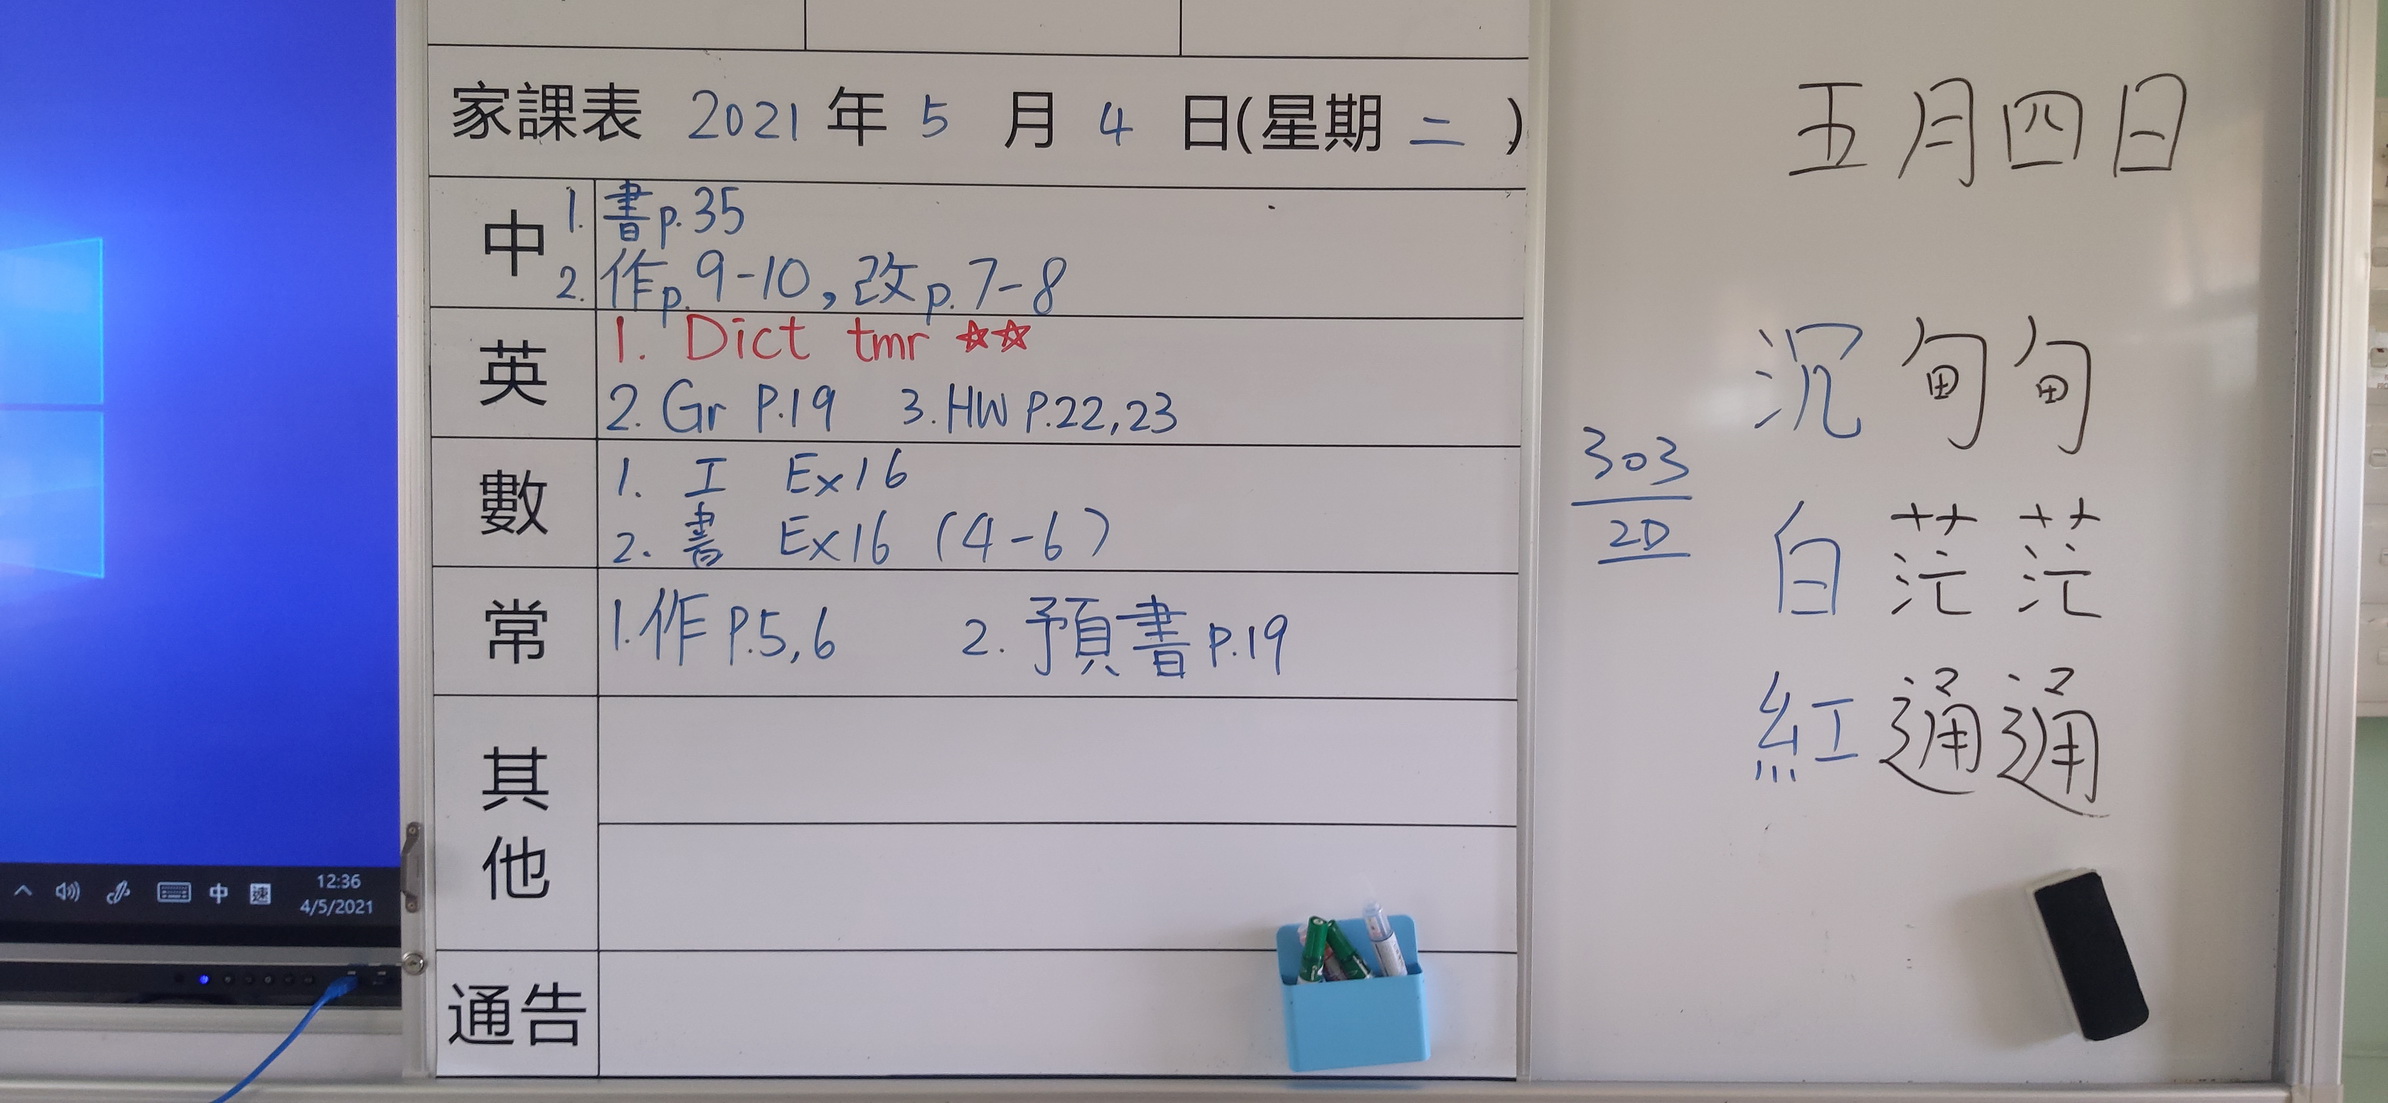 家課表 2021 年 5 月 4 日(星期 二 )
中
1. 書p.35
2. 作p.9-10,改p.7-8
英
1. Dict tmr ☆☆
2. Gr P.19 3. HW P.22,23
數
1. 工 Ex16
2. 書 Ex16 (4-6)
常
1. 作 P.5,6 2. 預書 P.19
其他
通告
12:36
中 速
4/5/2021
五月四日
沉甸甸
白茫茫
紅通通
303
2D